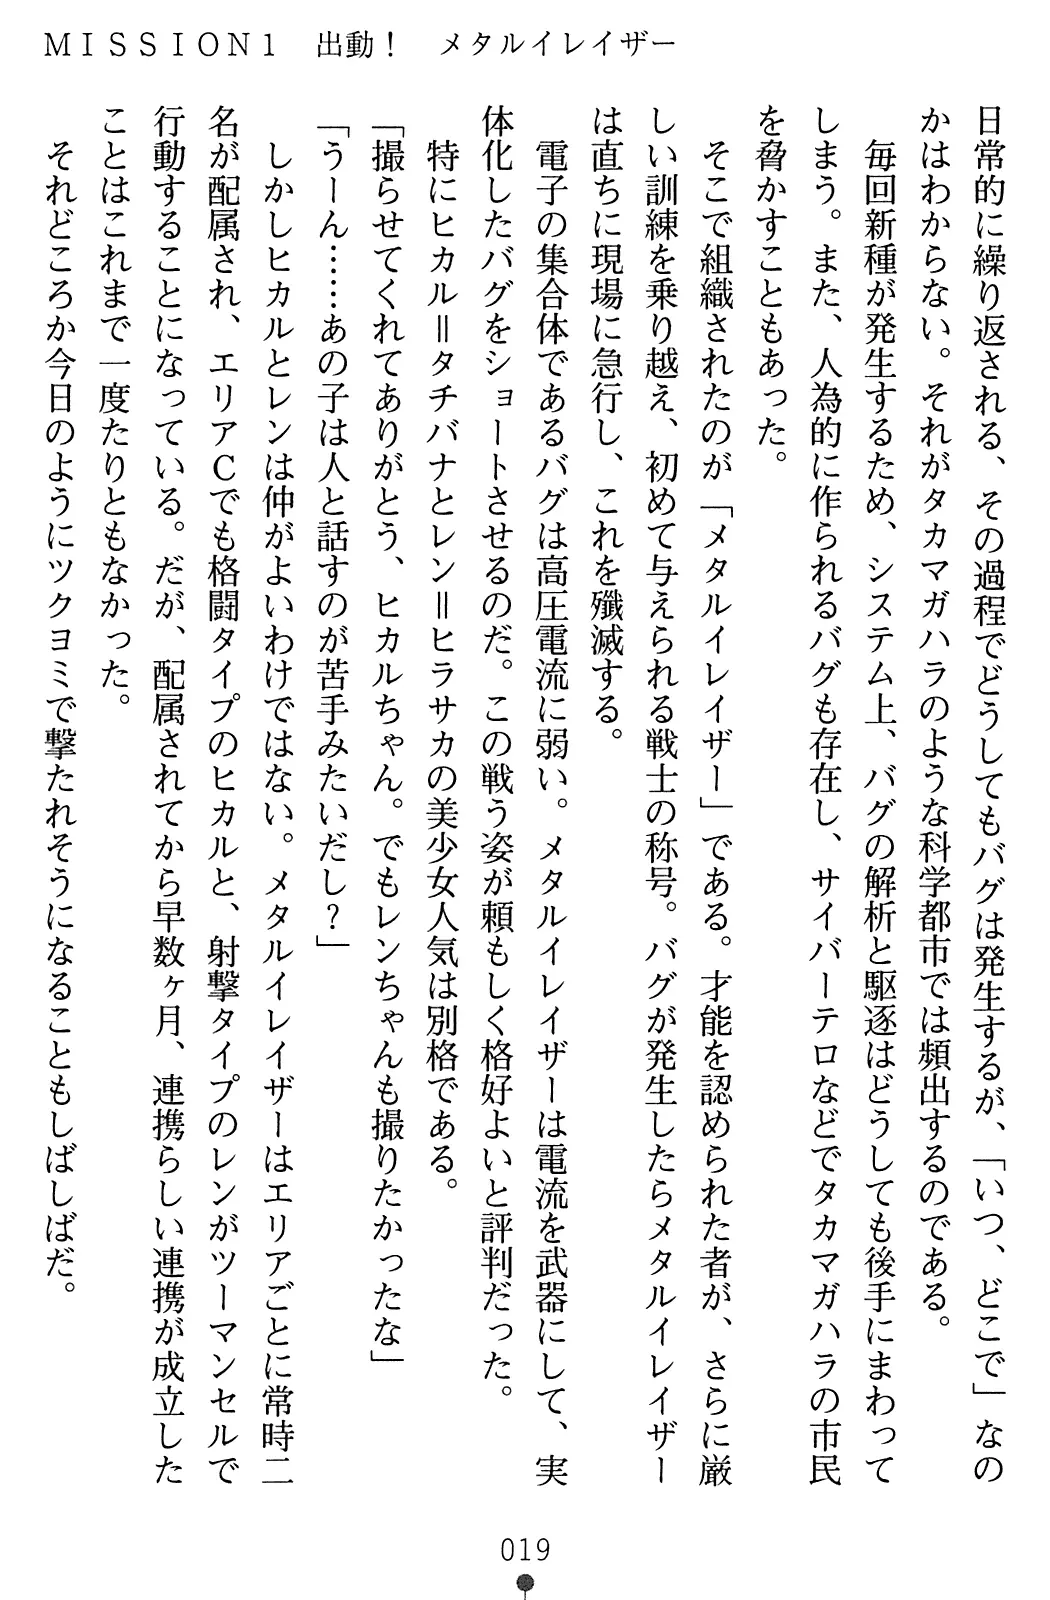 MISSION1　出動！　メタルイレイザー
日常的に繰り返される、その過程でどうしてもバグは発生するが、「いつ、どこで」なの
かはわからない。それがタカマガハラのような科学都市では頻出するのである。
　毎回新種が発生するため、システム上、バグの解析と駆逐はどうしても後手にまわって
しまう。また、人為的に作られるバグも存在し、サイバーテロなどでタカマガハラの市民
を脅かすこともあった。
　そこで組織されたのが「メタルイレイザー」である。才能を認められた者が、さらに厳
しい訓練を乗り越え、初めて与えられる戦士の称号。バグが発生したらメタルイレイザー
は直ちに現場に急行し、これを殲滅する。
　電子の集合体であるバグは高圧電流に弱い。メタルイレイザーは電流を武器にして、実
体化したバグをショートさせるのだ。この戦う姿が頼もしく格好よいと評判だった。
　特にヒカル＝タチバナとレン＝ヒラサカの美少女人気は別格である。
「撮らせてくれてありがとう、ヒカルちゃん。でもレンちゃんも撮りたかったな」
「うーん……あの子は人と話すのが苦手みたいだし？」
　しかしヒカルとレンは仲がよいわけではない。メタルイレイザーはエリアごとに常時二
名が配属され、エリアＣでも格闘タイプのヒカルと、射撃タイプのレンがツーマンセルで
行動することになっている。だが、配属されてから早数ヶ月、連携らしい連携が成立した
ことはこれまで一度たりともなかった。
　それどころか今日のようにツクヨミで撃たれそうになることもしばしばだ。
019